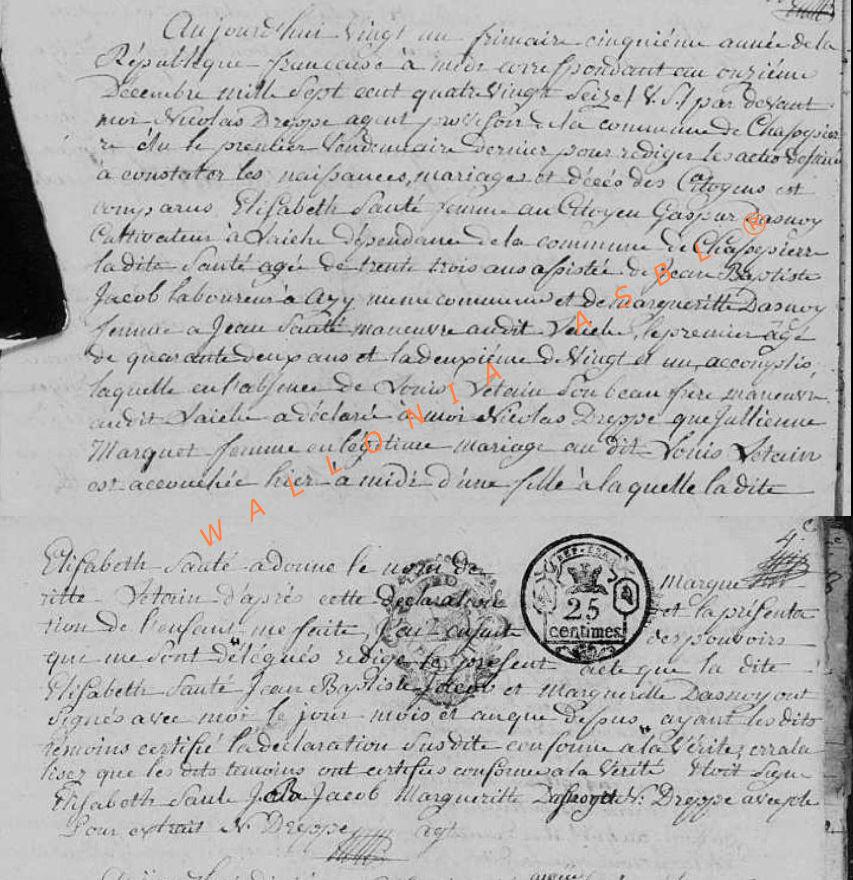 Aujourd'hui vingt un frimaire cinquiéme année de la
République française à midi correspondant au onziéme
Decembre mille Sept cent quatre vingt Seize / V. S. / par devant
moi Nicolas Dreppe agent provisoir de la commune de Chassepier
re élu le premier Vendemiaire dernier pour rediger les actes destiné
à constater les naissances, mariages et décés des Citoyens est
comparus Elisabeth Santé femme au Citoyen Gaspar Dasnoy
Cultivateur à Laiche dépendance de la commune de Chassepierre
ladite Santé agée de trente trois ans assistée de Jean Baptiste
Jacob laboureur à Azy meme commune et de Margueritte Dasnoy
femme a Jean Santé manœuvre audit Laiche, le premier agé
de quarante deux ans et la deuxiéme de Vingt et un accomplis,
laquelle en l'absence de Louis Létain Son beau frere manœuvre
audit Laiche a déclaré à moi Nicolas Dreppe que Jullienne
Marquet femme en légitime mariage au dit Louis Létain
est accouchée hier à midi d'une fille à laquelle ladite
Elisabeth Santé a donné le nom de Margue
ritte Létain d'après cette déclaration et la présenta
tion de l'enfant me faite, j'ai ensuite des pouvoirs
qui me sont délégués rédigé le présent acte que la dite
Elisabeth Santé Jean Baptiste Jacob et Margueritte Dasnoy ont
Signés avec moi le jour mois et an que dessus, ayant les dits
témoins certifié la déclaration Susdite conforme a la Vérité,
que les dits temoins ont certifiés conforme a la Verité Etoit Signé
Elisabeth Santé J. Jacob Margueritte Dasnoy et N. Dreppe
Pour extrait N. Dreppe agt
REP. FRA.
25
centimes
WALLONIA ASBL ®